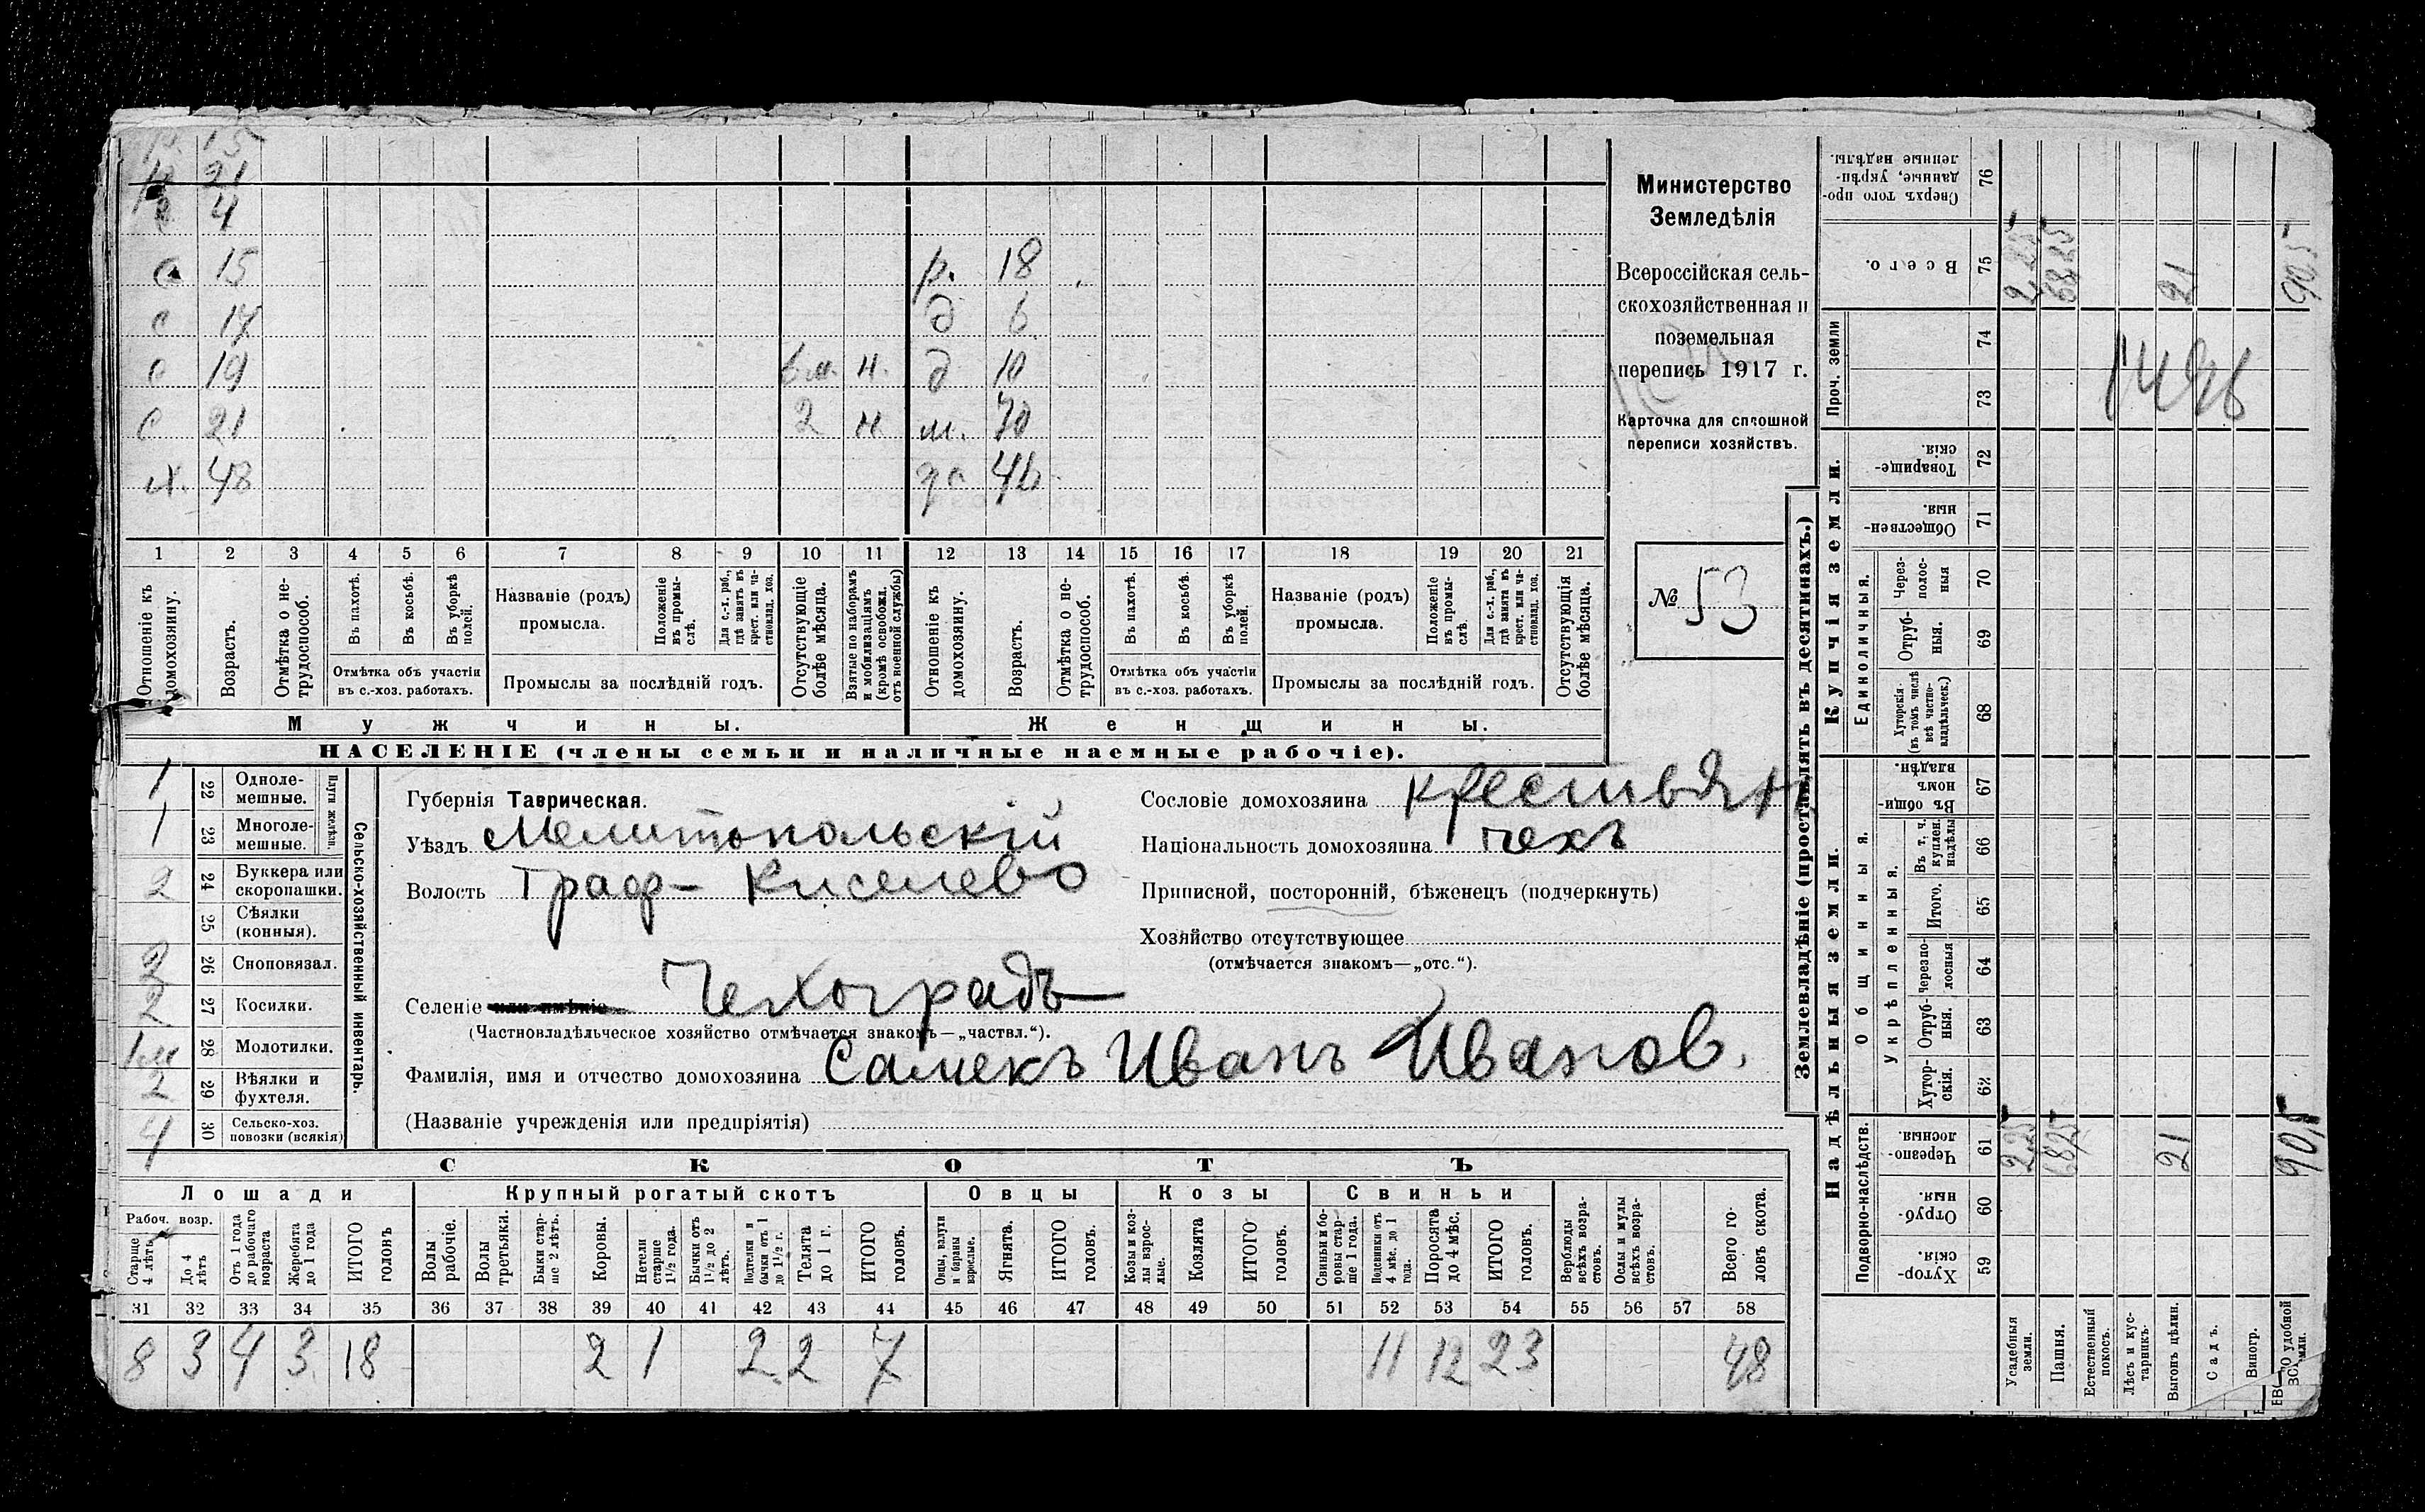 15
21
4
с 15 р. 18
с 17 д 6
с 19 н. д 10
с 21 2 н м. 70
х. 48
1 2 3 4 5 6 7 8 9 10 11 12 13 14 15 16 17 18 19 20 21
Отношеніе къ домохозяину.
Возрастъ.
Отмѣтка о нетрудоспособ.
Въ пахотѣ.
Въ косьбѣ.
Въ уборкѣ полей.
Отмѣтка объ участіи въ с.-хоз. работахъ.
Названіе (родъ) промысла.
Положеніе въ промыслѣ.
Для с.-х. раб., гдѣ занятъ въ крест. или частновлад. хоз.
Промыслы за послѣдній годъ.
Отсутствующіе болѣе мѣсяца.
Взятые по наборамъ и мобилизаціямъ (кромѣ освобожд. отъ военной службы)
Отношеніе къ домохозяину.
Возрастъ.
Отмѣтка о нетрудоспособ.
Въ пахотѣ.
Въ косьбѣ.
Въ уборкѣ полей.
Отмѣтка объ участіи въ с.-хоз. работахъ.
Названіе (родъ) промысла.
Положеніе въ промыслѣ.
Для с.-х. раб., гдѣ занята въ крест. или частновлад. хоз.
Промыслы за послѣдній годъ.
Отсутствующія болѣе мѣсяца.
Мужчины. Женщины.
НАСЕЛЕНІЕ (члены семьи и наличные наемные рабочіе).
Министерство
Земледѣлія
Всероссійская сель-
скохозяйственная и
поземельная
перепись 1917 г.
Карточка для сплошной
переписи хозяйствъ.
№ 53
Сельско-хозяйственный инвентарь.
Плуги желѣзн.
1 22 Одноле-
мешные.
1 23 Многоле-
мешные.
2 24 Буккера или
скоропашки.
25 Сѣялки
(конныя).
2 26 Сноповязал.
2 27 Косилки.
28 Молотилки.
2 29 Вѣялки и
фухтеля.
4 30 Сельско-хоз.
повозки (всякія)
Губернія Таврическая.
Уѣздъ Мелитопольскій
Волость Граф-Киселево
Селеніе или имѣніе Чехоградъ
(Частновладѣльческое хозяйство отмѣчается знакомъ—„частвл.“).
Фамилія, имя и отчество домохозяина Самекъ Иванъ Иванов.
(Названіе учрежденія или предпріятія)
Сословіе домохозяина крестьян
Національность домохозяина чехъ
Приписной, посторонній, бѣженецъ (подчеркнуть)
Хозяйство отсутствующее
(отмѣчается знакомъ—„отс.“).
СКОТЪ
Лошади Крупный рогатый скотъ Овцы Козы Свиньи
Рабоч. возр.
Старше 4 лѣтъ
До 4 лѣтъ
Отъ 1 года до рабочаго возраста
Жеребята до 1 года
ИТОГО головъ
Волы рабочіе.
Волы третьяки.
Быки старше 2 лѣтъ.
Коровы.
Нетели старше 1½ года.
Бычки отъ 1½ до 2 лѣтъ.
Подтелки и бычки отъ 1 до 1½ г.
Телята до 1 г.
ИТОГО головъ.
Овцы, валухи и бараны взрослые.
Ягнята.
ИТОГО головъ.
Козы и козлы взрослые.
Козлята
ИТОГО головъ.
Свиньи и боровы старше 1 года.
Подсвинки отъ 4 мѣс. до 1 года.
Поросята до 4 мѣс.
ИТОГО головъ.
Верблюды всѣхъ возрастовъ.
Ослы и мулы всѣхъ возрастовъ.
Всего головъ скота.
31 32 33 34 35 36 37 38 39 40 41 42 43 44 45 46 47 48 49 50 51 52 53 54 55 56 57 58
8 3 4 3 18 2 1 2 2 7 11 12 23 48
Землевладѣніе (проставлять въ десятинахъ.)
Купчія земли.
Надѣльныя земли.
Сверхъ того проданные, укрѣпленные надѣлы. 76
Всего. 75 2,25 68,25 21 90,5
Проч. земли 74
73
1496
Товарищескія. 72
Общественныя. 71
Единоличныя.
Черезполосныя 70
Отрубныя. 69
Хуторскія (въ томъ числѣ всѣ частновладѣльческ.) 68
Общинныя.
Въ общинномъ владѣн. 67
Укрѣпленныя.
Въ т. ч. куплен. надѣлы 66
Итого. 65
Черезполосныя 64
Отрубныя. 63
Хуторскія. 62
Подворно-наслѣдств.
Черезполосныя. 61 2,25 68,25 21 90,5
Отрубныя. 60
Хуторскія. 59
Усадебныя земли.
Пашня.
Естественный покосъ.
Лѣсъ и кустарникъ.
Выгонъ цѣлин.
Садъ.
Виногр.
удобной